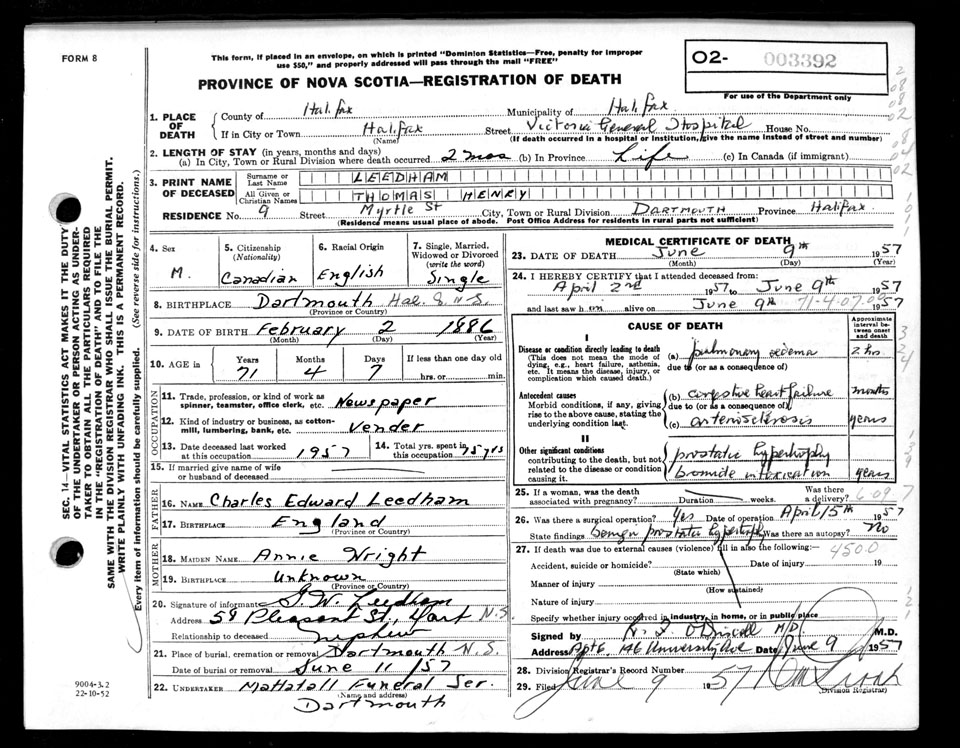 FORM 8
This form, if placed in an envelope, on which is printed "Dominion Statistics—Free, penalty for improper
use $50," and properly addressed will pass through the mail "FREE"
PROVINCE OF NOVA SCOTIA—REGISTRATION OF DEATH
O2- 003392
For use of the Department only
1. PLACE OF DEATH
County of Halifax Municipality of Halifax
If in City or Town Halifax Street Victoria General Hospital House No.
(Name) (If death occurred in a hospital or institution, give the name instead of street and number)
2. LENGTH OF STAY (in years, months and days)
(a) In City, Town or Rural Division where death occurred 2 mos (b) In Province Life (c) In Canada (if immigrant)
3. PRINT NAME OF DECEASED
Surname or Last Name LEEDHAM
All Given or Christian Names THOMAS HENRY
RESIDENCE No. 9 Street Myrtle St City, Town or Rural Division DARTMOUTH Province Halifax
(Residence means usual place of abode. Post Office Address for residents in rural parts not sufficient)
4. Sex M.
5. Citizenship (Nationality) Canadian
6. Racial Origin English
7. Single, Married, Widowed or Divorced (write the word) Single
8. BIRTHPLACE Dartmouth Hal. Co N.S.
(Province or Country)
9. DATE OF BIRTH February 2 1886
(Month) (Day) (Year)
10. AGE in Years 71 Months 4 Days 7 If less than one day old
hrs. or min.
OCCUPATION
11. Trade, profession, or kind of work as spinner, teamster, office clerk, etc. Newspaper
12. Kind of industry or business, as cotton-mill, lumbering, bank, etc. Vender
13. Date deceased last worked at this occupation 1957
14. Total yrs. spent in this occupation
15. If married give name of wife or husband of deceased
FATHER
16. NAME Charles Edward Leedham
17. BIRTHPLACE England
(Province or Country)
MOTHER
18. MAIDEN NAME Annie Wright
19. BIRTHPLACE Unknown
(Province or Country)
20. Signature of informant Leedham
Address 58 Pleasant St., Dart N.S.
Relationship to deceased nephew
21. Place of burial, cremation or removal Dartmouth N.S.
Date of burial or removal June 11/57
22. UNDERTAKER Mattatall Funeral Ser.
(Name and address)
Dartmouth
MEDICAL CERTIFICATE OF DEATH
23. DATE OF DEATH June 9th 1957
(Month) (Day) (Year)
24. I HEREBY CERTIFY that I attended deceased from:
April 2nd 1957 to June 9th 1957
and last saw him alive on June 9th 1957
71-4-07-09
CAUSE OF DEATH
Approximate interval between onset and death
I
Disease or condition directly leading to death
(This does not mean the mode of dying, e.g., heart failure, asthenia, etc. It means the disease, injury, or complication which caused death.)
(a) pulmonary oedema 2 hrs.
due to (or as a consequence of)
Antecedent causes
Morbid conditions, if any, giving rise to the above cause, stating the underlying condition last.
(b) congestive heart failure months
due to (or as a consequence of)
(c) arteriosclerosis years
II
Other significant conditions contributing to the death, but not related to the disease or condition causing it.
prostatic hypertrophy
bromide intoxication years
25. If a woman, was the death associated with pregnancy? Duration weeks. Was there a delivery?
26. Was there a surgical operation? Yes Date of operation April 15th 1957
State findings benign prostatic hypertrophy Was there an autopsy? No
27. If death was due to external causes (violence) fill in also the following:—
450.0
Accident, suicide or homicide? Date of injury 19
(State which)
Manner of injury
(How sustained)
Nature of injury
Specify whether injury occurred in industry, in home, or in public place
Signed by O'Driscoll MD M.D.
Address Apt 6, 146 University Ave Date June 9 1957
28. Division Registrar's Record Number
29. Filed June 9 1957
(Division Registrar)
SEC. 14—VITAL STATISTICS ACT MAKES IT THE DUTY OF THE UNDERTAKER OR PERSON ACTING AS UNDERTAKER TO OBTAIN ALL THE PARTICULARS REQUIRED IN THE "REGISTRATION OF DEATH" AND TO FILE THE SAME WITH THE DIVISION REGISTRAR WHO SHALL ISSUE THE BURIAL PERMIT.
WRITE PLAINLY WITH UNFADING INK. THIS IS A PERMANENT RECORD.
Every item of information should be carefully supplied. (See reverse side for instructions.)
9004-3.2
22-10-52